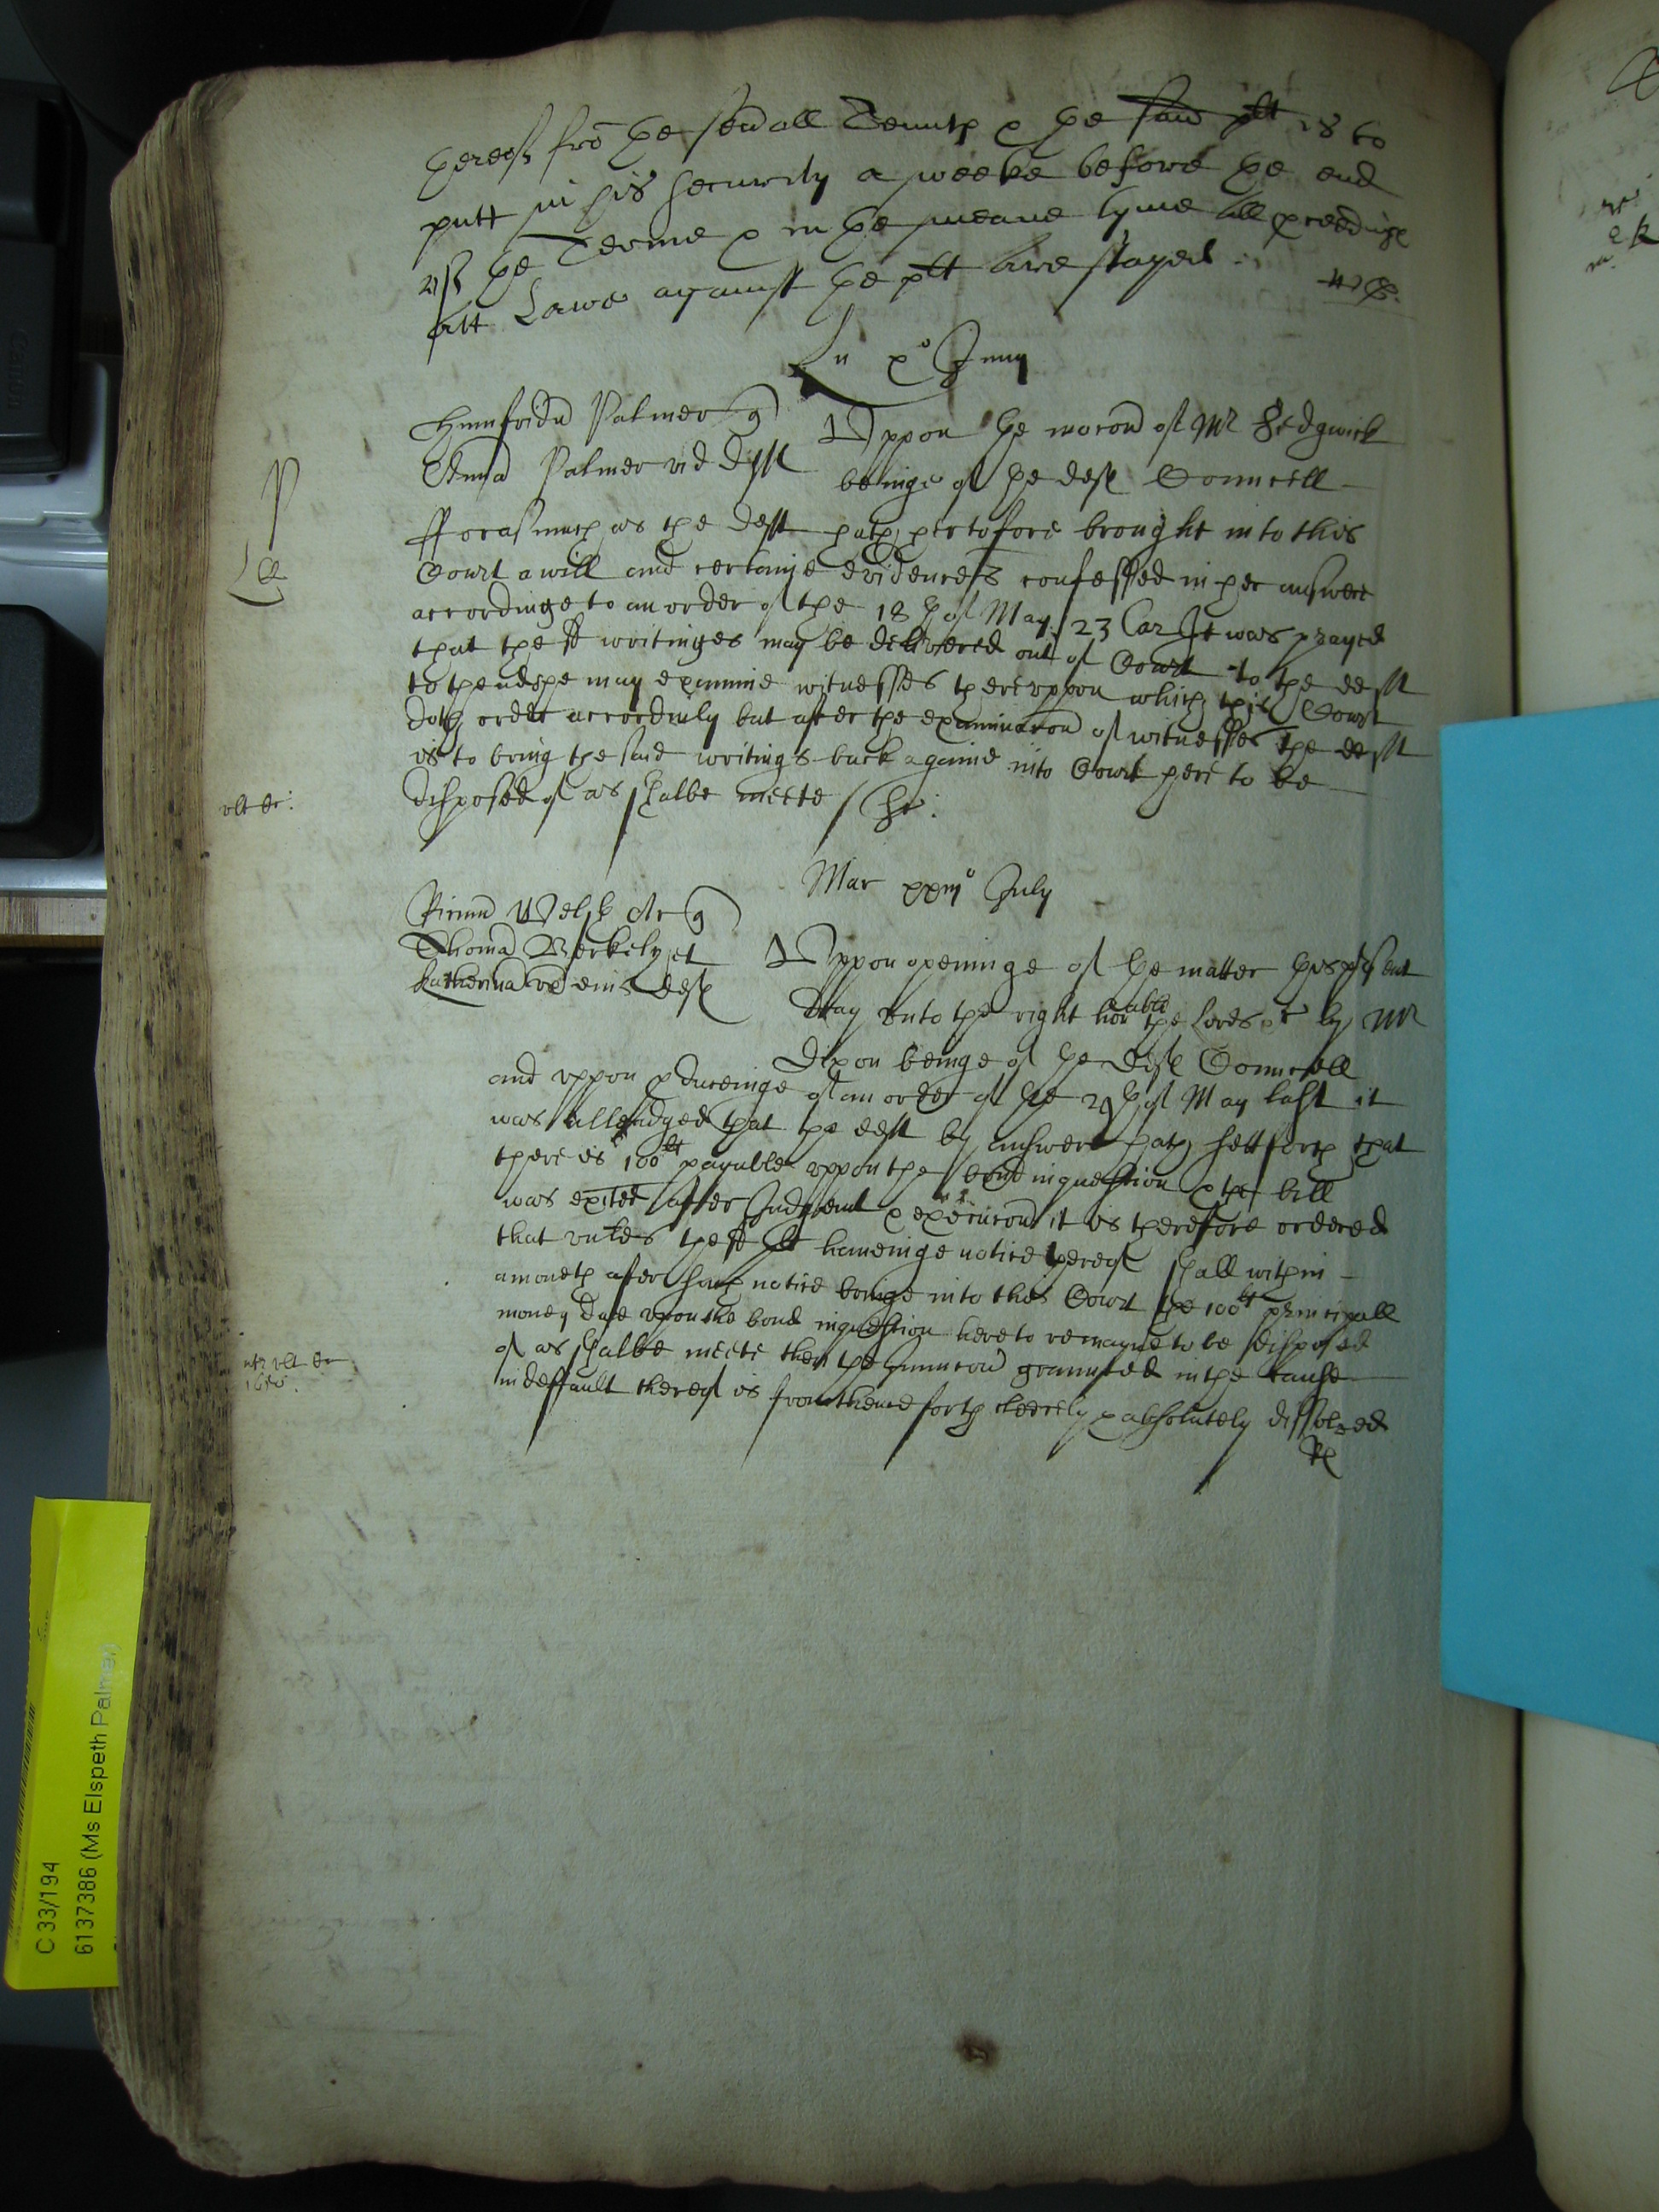 hereof fro the sevall Tennts & the said plt is to
putt in his security a weeke before the end
of the Terme & in the meane tyme all pceedings
att Lawe against the plt are stayed
Lu xº Junij
P
Humfridu Palmer q
Anna Palmer vid deft
Uppon the mocon of Mr Sedgwick
beinge of the defts Councell
fforasmuch as the deft hath heretofore brought into this
Court a will and certaine evidences confessed in her answere
accordinge to an order of the 18th of May 23 Car It was prayed
that the sd writinges may be delivered out of Court to the deft
to thend she may examine witnesses thereuppon which this Court
doth order accordinly but after the examinacon of witnesses the deft
is to bring the said writings back againe into Court here to be
disposed of as shalbe meete
ult
Mar xxiijº July
Welsh Ar q
Thoma Berkely et
Katherina ux eius defts
Uppon openinge of the matter this psent
day unto the right honable the Lords by Mr
Dixon beinge of the defts Councell
and uppon pduceinge of an order of the 29th of May last it
was alleadged that the deft by answere hath sett forth that
there is 100lt payable uppon the bond in question & the bill
was exited after Judgment & execucon it is therefore ordered
that unles the sd plt haveinge notice hereof shall within
a moneth after such notice bringe into this Court the 100lt principall
money due upon the bond in question here to remayne to be disposed
of as shalbe meete then the Iniuncon graunted in the cause
in deffault thereof is from thenceforth cleerely & absolutely dissolved
C 33/194
6137386 (Ms Elspeth Palmer)